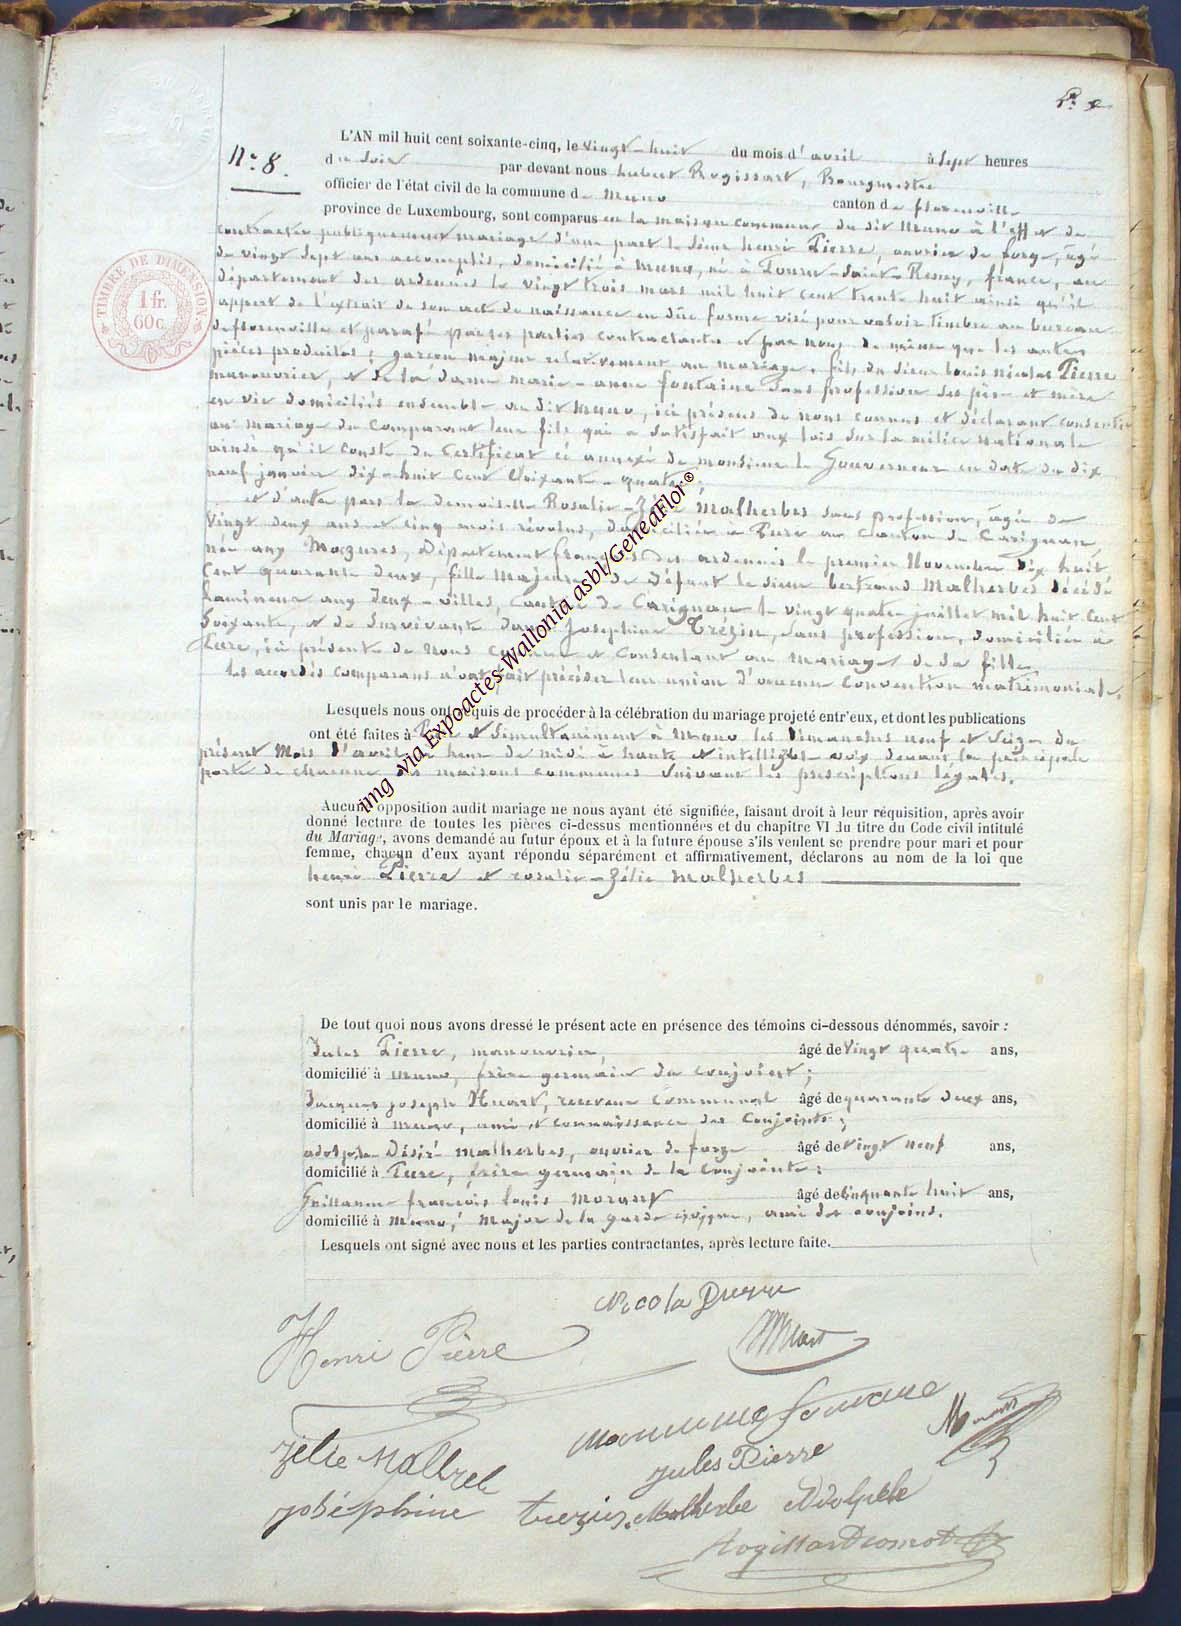 N° 8.
TIMBRE DE DIMENSION
1 fr.
60 c.
L'AN mil huit cent soixante-cinq, le vingt-huit du mois d'avril à Sept heures
du soir par devant nous hubert Rogissart, Bourgmestre
officier de l'état civil de la commune de Muno canton de florenville
province de Luxembourg, sont comparus en la maison commune du dit Muno à l'effet de
contracter publiquement mariage d'une part le sieur henri Pierre, ouvrier de forge, âgé
de vingt sept ans accomplis, domicilié à Muno, né à France, au
département des ardennes le vingt trois mars mil huit cent trente huit ainsi qu'il
appert de l'extrait de son acte de naissance en due forme visé pour valoir timbre au bureau
de florenville et parafé par les parties contractantes et par nous de même que les autres
pièces produites; garçon majeur relativement au mariage, fils du sieur louis nicolas Pierre
manouvrier, et de la dame marie-anne fontaine sans profession ses père et mère
en vie domiciliés ensemble au dit Muno, ici présens de nous connus et déclarant consentir
au mariage du comparant leur fils qui a satisfait aux lois sur la milice nationale
ainsi qu'il conste du certificat ci annexé de monsieur le Gouverneur en date du dix
neuf janvier dix-huit cent soixante-quatre;
et d'autre part la demoiselle Rosalie-Zélie Malherbes sans profession, âgée de
vingt deux ans et cinq mois révolus, domiciliée à Pure au Canton de Carignan,
née aux Mazures, département français des ardennes le premier Novembre dix huit
cent quarante deux, fille majeure de défunt le sieur bertrand Malherbes décédé
lamineur aux deux-villes, Canton de Carignan le vingt quatre juillet mil huit cent
soixante, et de survivante dame Josephine Trézin, sans profession, domiciliée à
Pure, ici présente de nous connue et consentant au mariage de sa fille.
les accordés comparans n'ont fait précéder leur union d'aucune convention matrimoniale.
Lesquels nous ont requis de procéder à la célébration du mariage projeté entr'eux, et dont les publications
ont été faites à Pure et simultanément à Muno les dimanches neuf et seize du
présent mois d'avril à heure de midi à haute et intelligible voix devant la principale
porte de chacune des maisons communes suivant les prescriptions légales.
Aucune opposition audit mariage ne nous ayant été signifiée, faisant droit à leur réquisition, après avoir
donné lecture de toutes les pièces ci-dessus mentionnées et du chapitre VI du titre du Code civil intitulé
du Mariage, avons demandé au futur époux et à la future épouse s'ils veulent se prendre pour mari et pour
femme, chacun d'eux ayant répondu séparément et affirmativement, déclarons au nom de la loi que
henri Pierre et rosalie-Zélie Malherbes
sont unis par le mariage.
De tout quoi nous avons dressé le présent acte en présence des témoins ci-dessous dénommés, savoir :
Jules Pierre, manouvrier, âgé de vingt quatre ans,
domicilié à Muno, frère germain du conjoint;
Jacques joseph Huart, receveur communal âgé de quarante deux ans,
domicilié à Muno, ami et connaissance des conjoints;
adolphe Désiré Malherbes, ouvrier de forge âgé de vingt neuf ans,
domicilié à Pure, frère germain de la conjointe;
Guillaume françois louis Morant âgé de cinquante huit ans,
domicilié à Muno, Major de la garde civique, ami des conjoins.
Lesquels ont signé avec nous et les parties contractantes, après lecture faite.
Henri Pierre
Zélie Malherbe
Jules Pierre
Joséphine trezin. Malherbe Adolphe
img via Expoactes-Wallonia asbl/GeneaFlor®